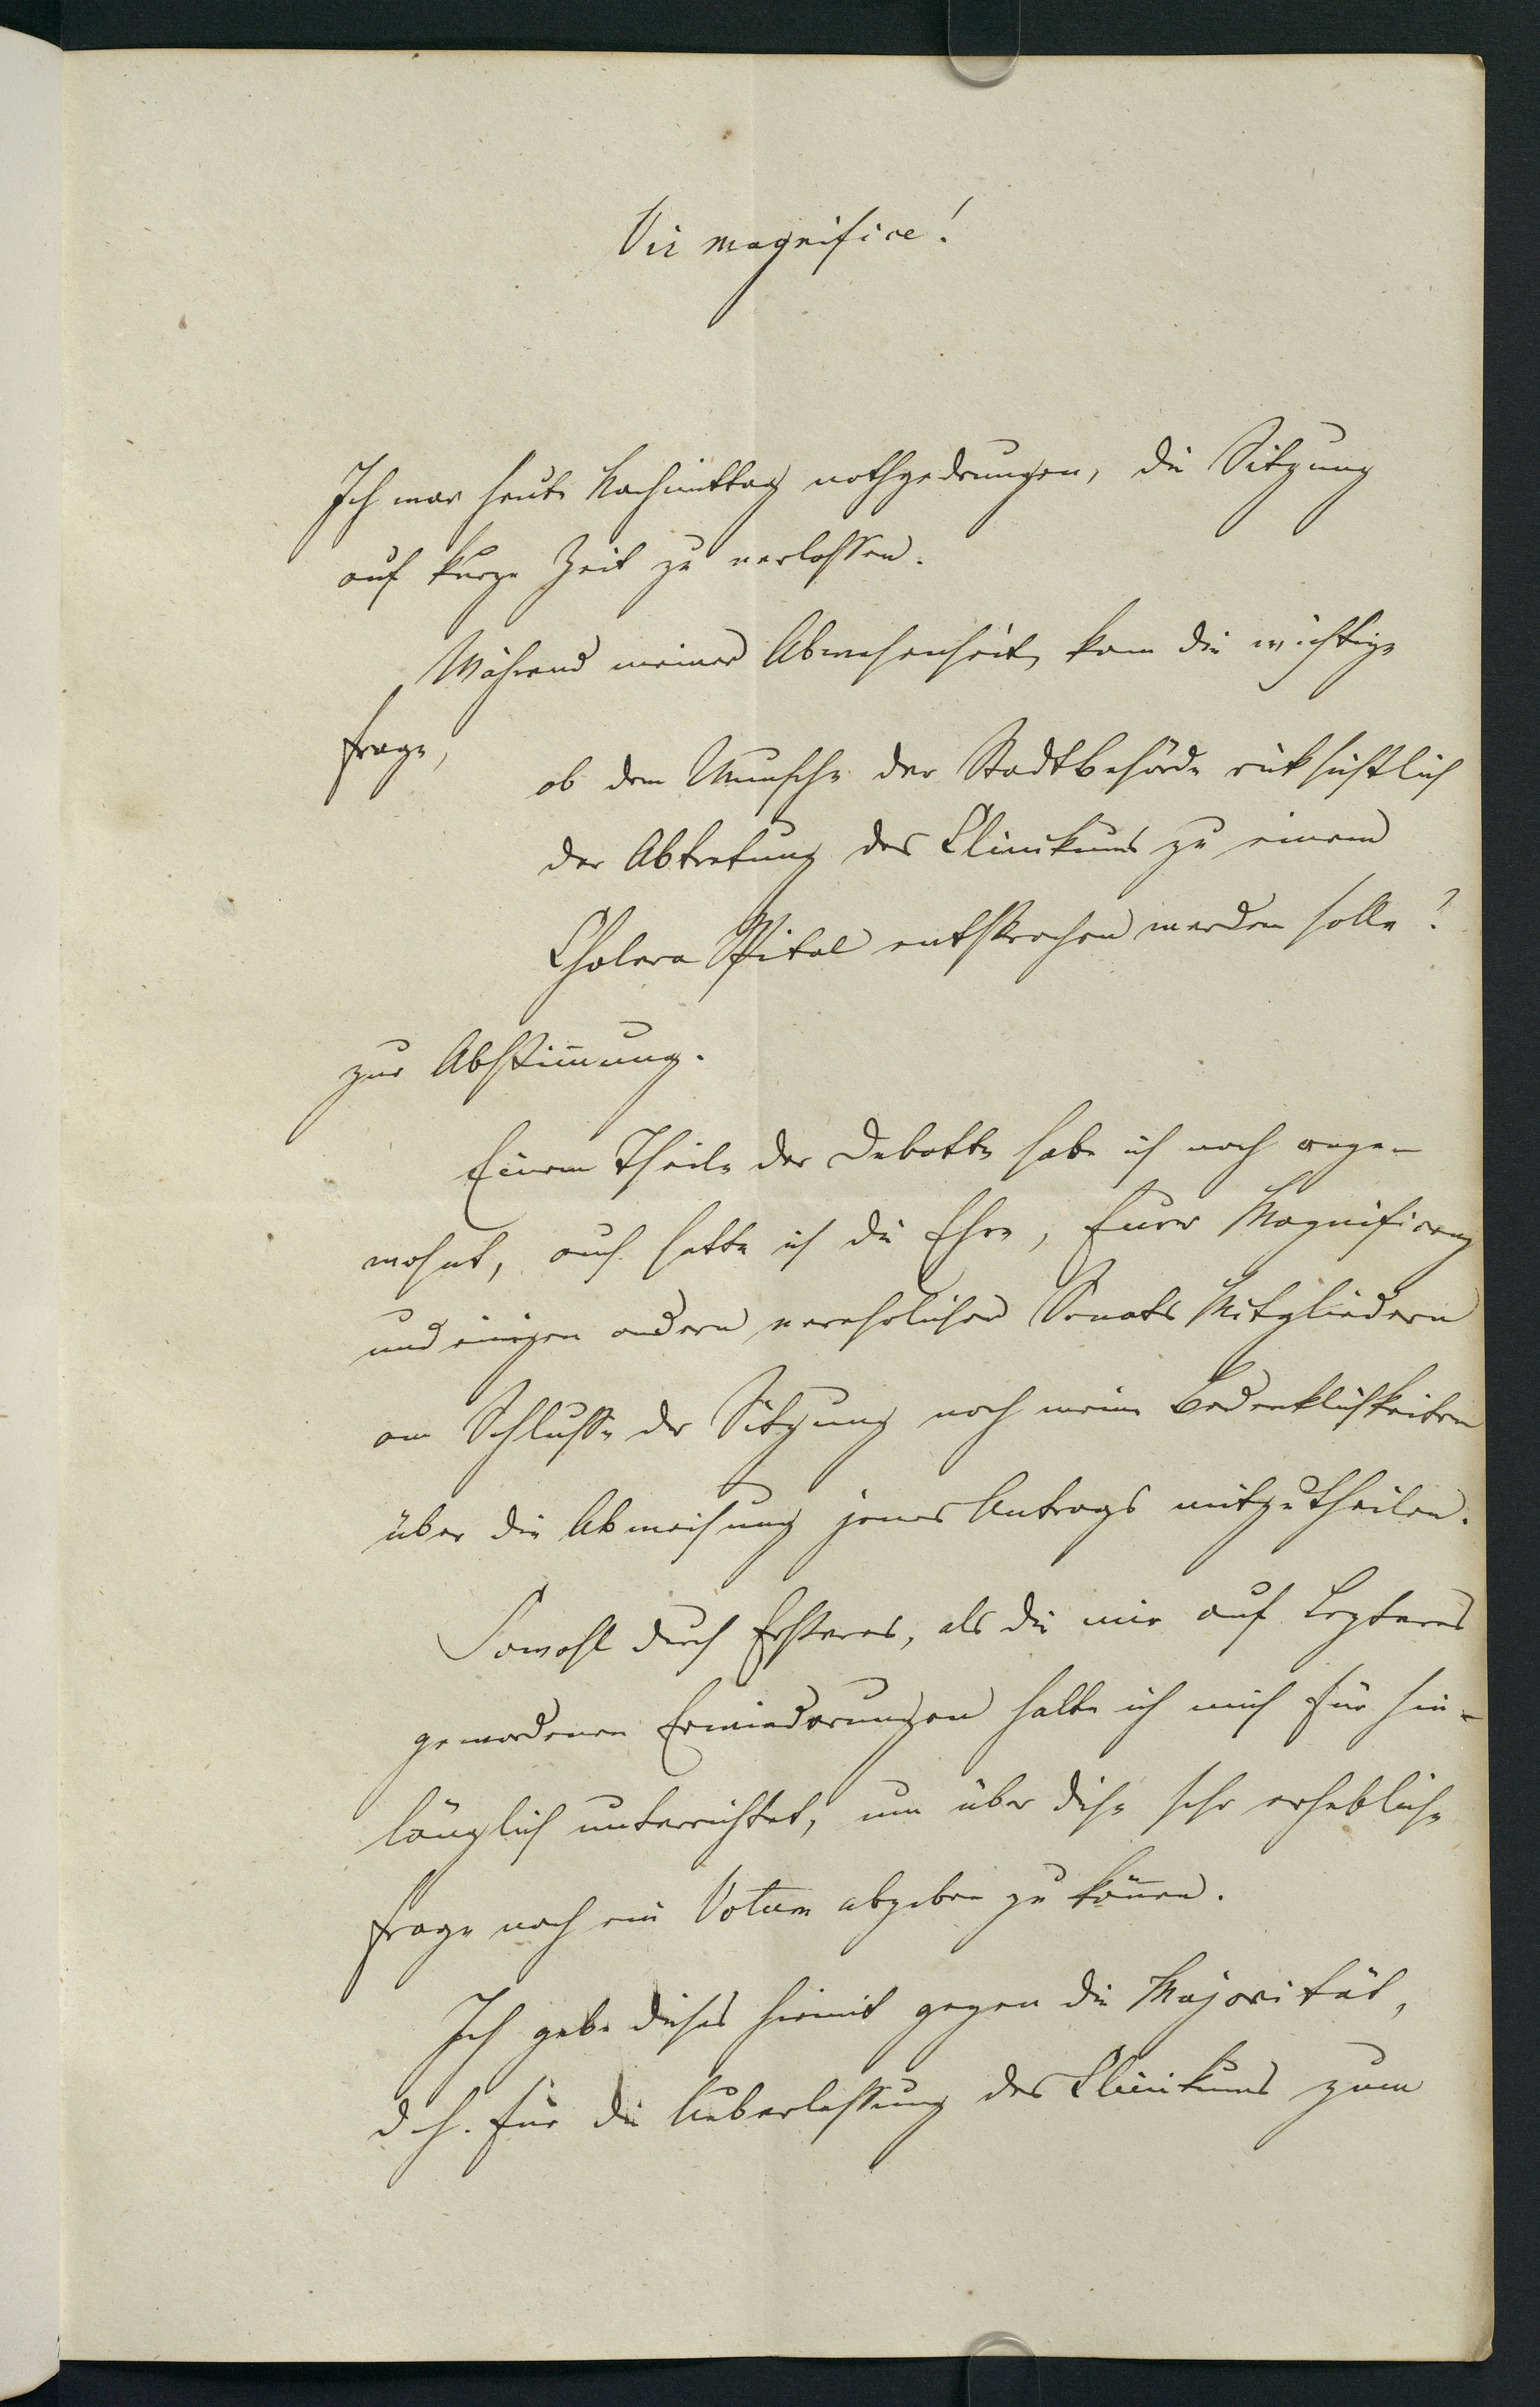 Vir magnifice!
Ich war heute Nachmittag nothgedrungen, die Sitzung
auf kurze Zeit zu verlassen.
Während meiner Abwesenheit kam die wichtige
Frage,
ob dem Wunsche der Stadtbehörde rüksichtlich
der Abtretung des Clinikums zu einem
Cholera Spital entsprochen werden solle?
zur Abstim̅ung.
Einem Theile der Debatte habe ich noch ange-
wohnt, auch hatte ich die Ehre, Euer Magnificenz
und einigen andern verehrlichen Senats Mitgliedern
am Schlusse der Sitzung noch meine Bedenklichkeiten
über die Abweisung jenes Antrags mitzutheilen.
Sowohl durch Ersteres, als die mir auf Lezteres
gewordenen Erwiederungen halte ich mich für hin-
länglich unterrichtet, um über diese sehr erhebliche
Frage noch ein Votum abgeben zu kön̅en.
Ich gebe dieses hiemit gegen die Majorität,
d. h. für die Ueberlassung des Clinikums zum